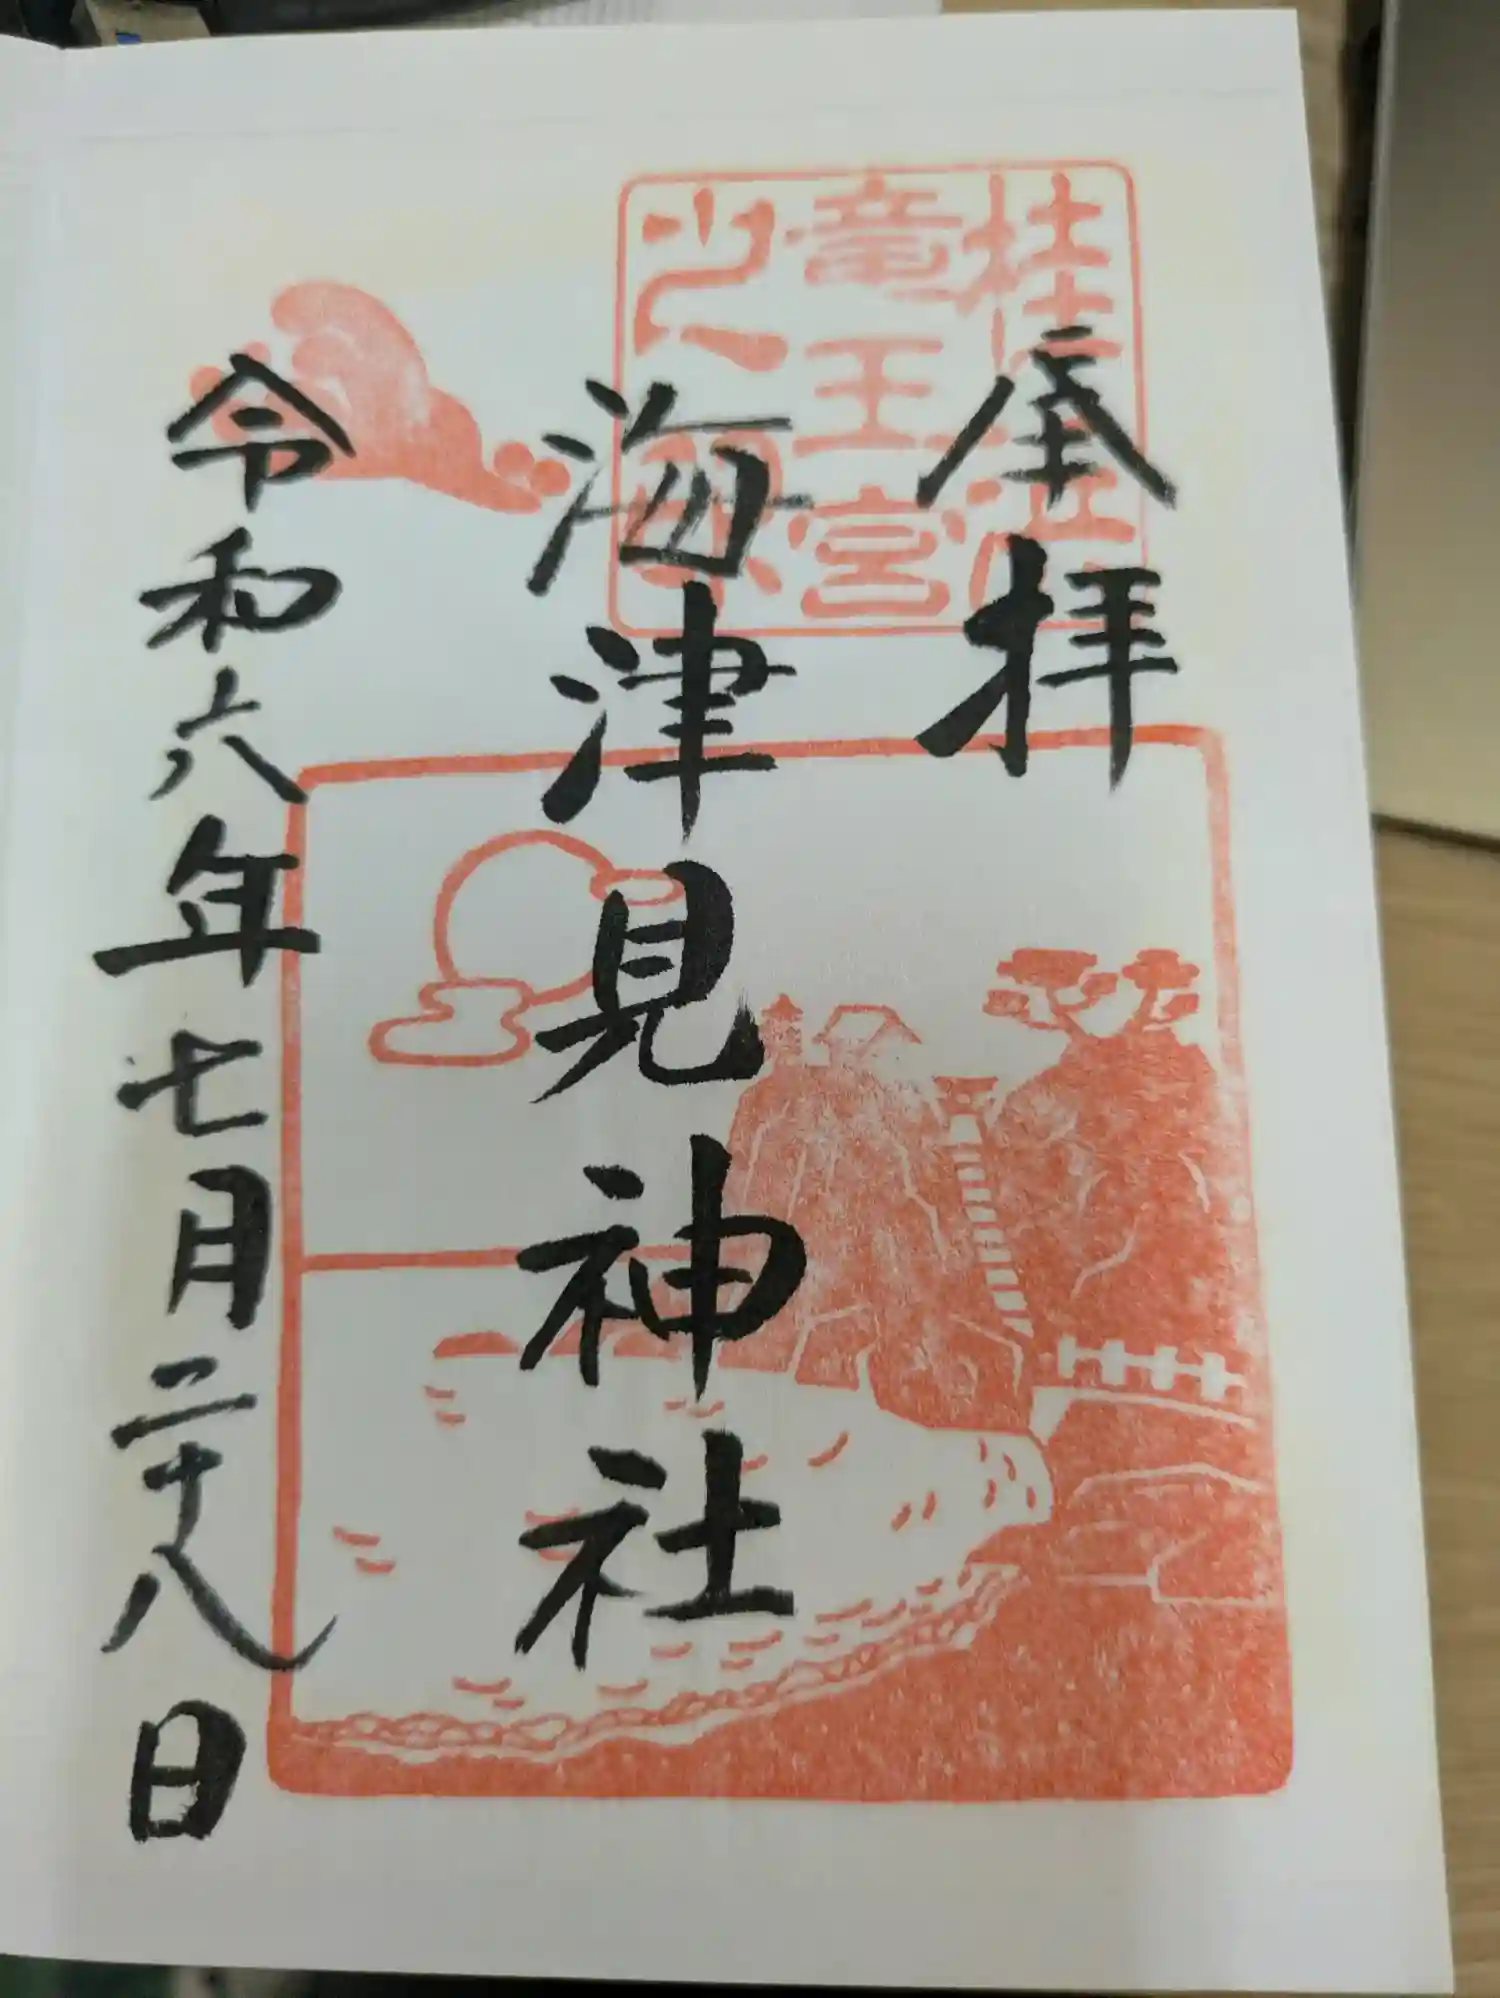 奉拝
海津見神社
令和六年七月二十八日
桂浜
竜王宮
之印